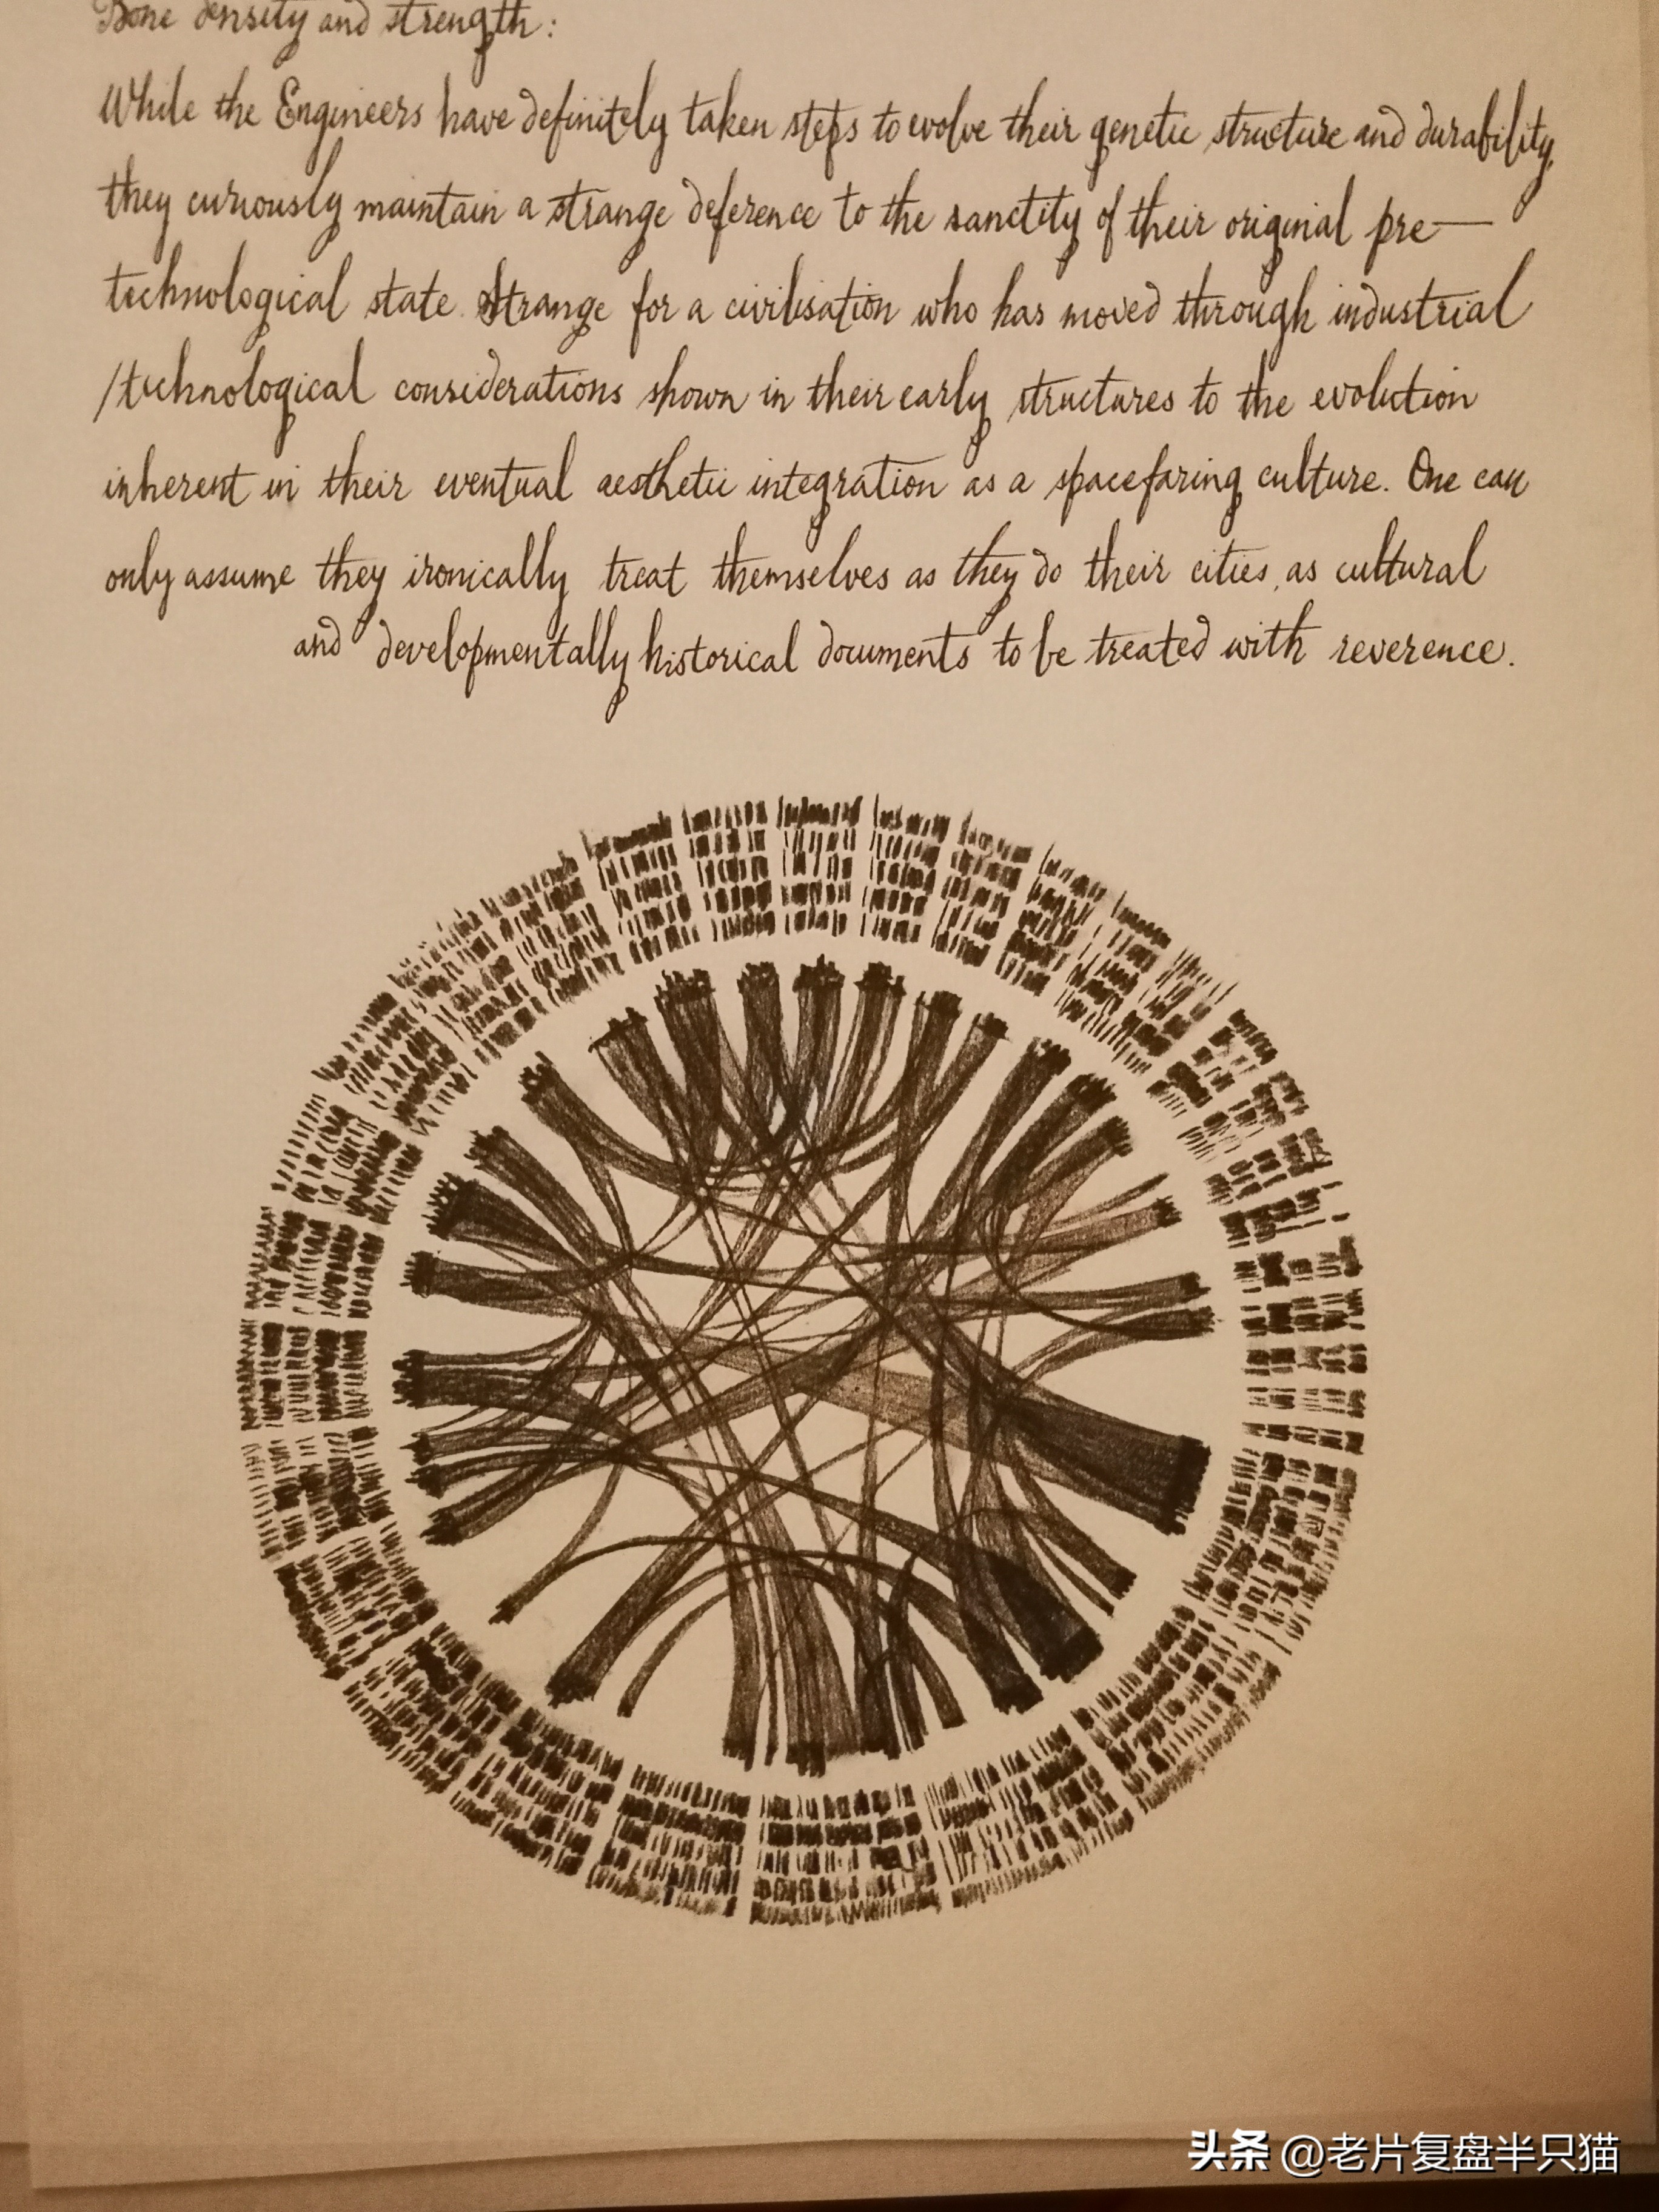 Bone density and strength:
While the Engineers have definitely taken steps to evolve their genetic structure and durability,
they curiously maintain a strange deference to the sanctity of their original pre—
technological state. Strange for a civilisation who has moved through industrial
/technological considerations shown in their early structures to the evolution
inherent in their eventual aesthetic integration as a spacefaring culture. One can
only assume they ironically treat themselves as they do their cities, as cultural
and developmentally historical documents to be treated with reverence.
头条 @老片复盘半只猫